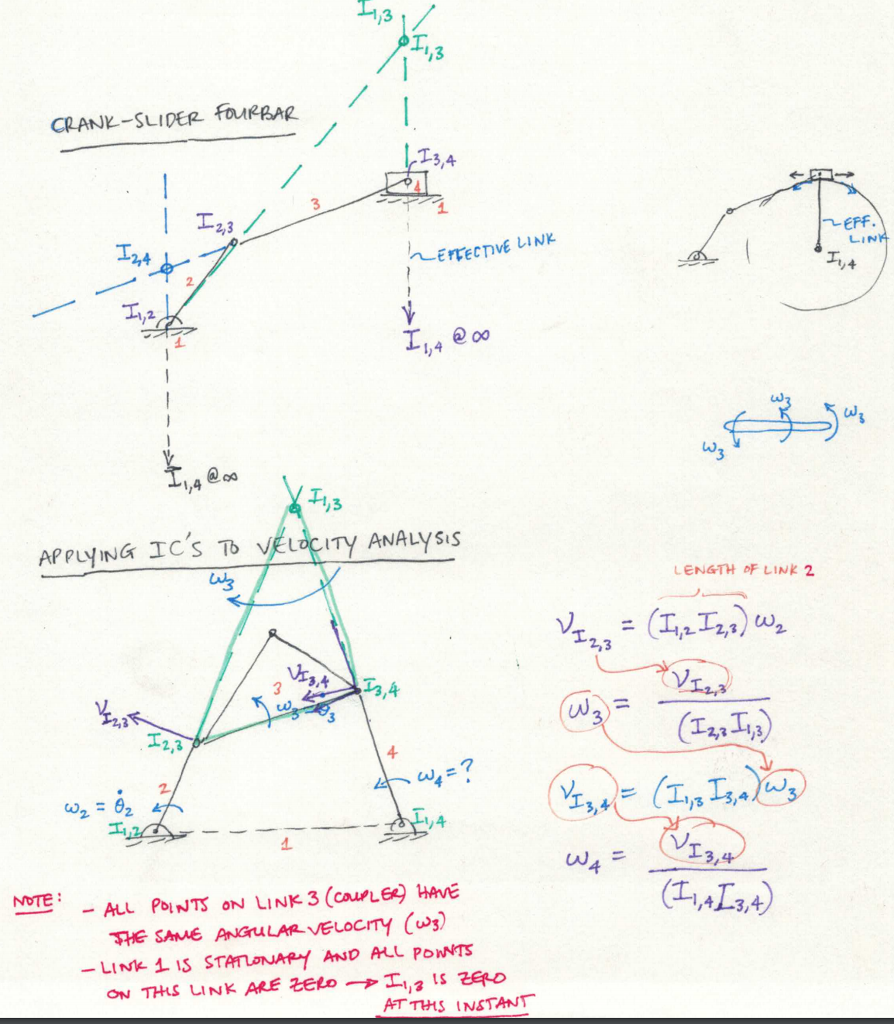 I1,3
I1,3
CRANK-SLIDER FOURBAR
I3,4
4
1
3
I2,3
I2,4
2
I1,2
1
EFFECTIVE LINK
I1,4 @ ∞
I1,4 @ ∞
EFF.
LINK
I1,4
ω3
ω3
ω3
APPLYING IC'S TO VELOCITY ANALYSIS
I1,3
ω3
VI3,4
3
I3,4
ω3 = θ̇3
VI2,3
I2,3
2
4
ω4 = ?
ω2 = θ̇2
I1,2
I1,4
1
LENGTH OF LINK 2
VI2,3 = (I1,2 I2,3) ω2
ω3 = VI2,3 / (I2,3 I1,3)
VI3,4 = (I1,3 I3,4) ω3
ω4 = VI3,4 / (I1,4 I3,4)
NOTE: - ALL POINTS ON LINK 3 (COUPLER) HAVE
THE SAME ANGULAR VELOCITY (ω3)
- LINK 1 IS STATIONARY AND ALL POINTS
ON THIS LINK ARE ZERO → I1,3 IS ZERO
AT THIS INSTANT